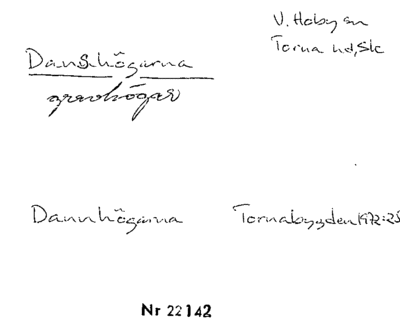 V. Hoby sn
Torna hd, Sk
Danshögarna
gravhögar
Dannhögarna Tornabygden 1972:23
Nr 22142